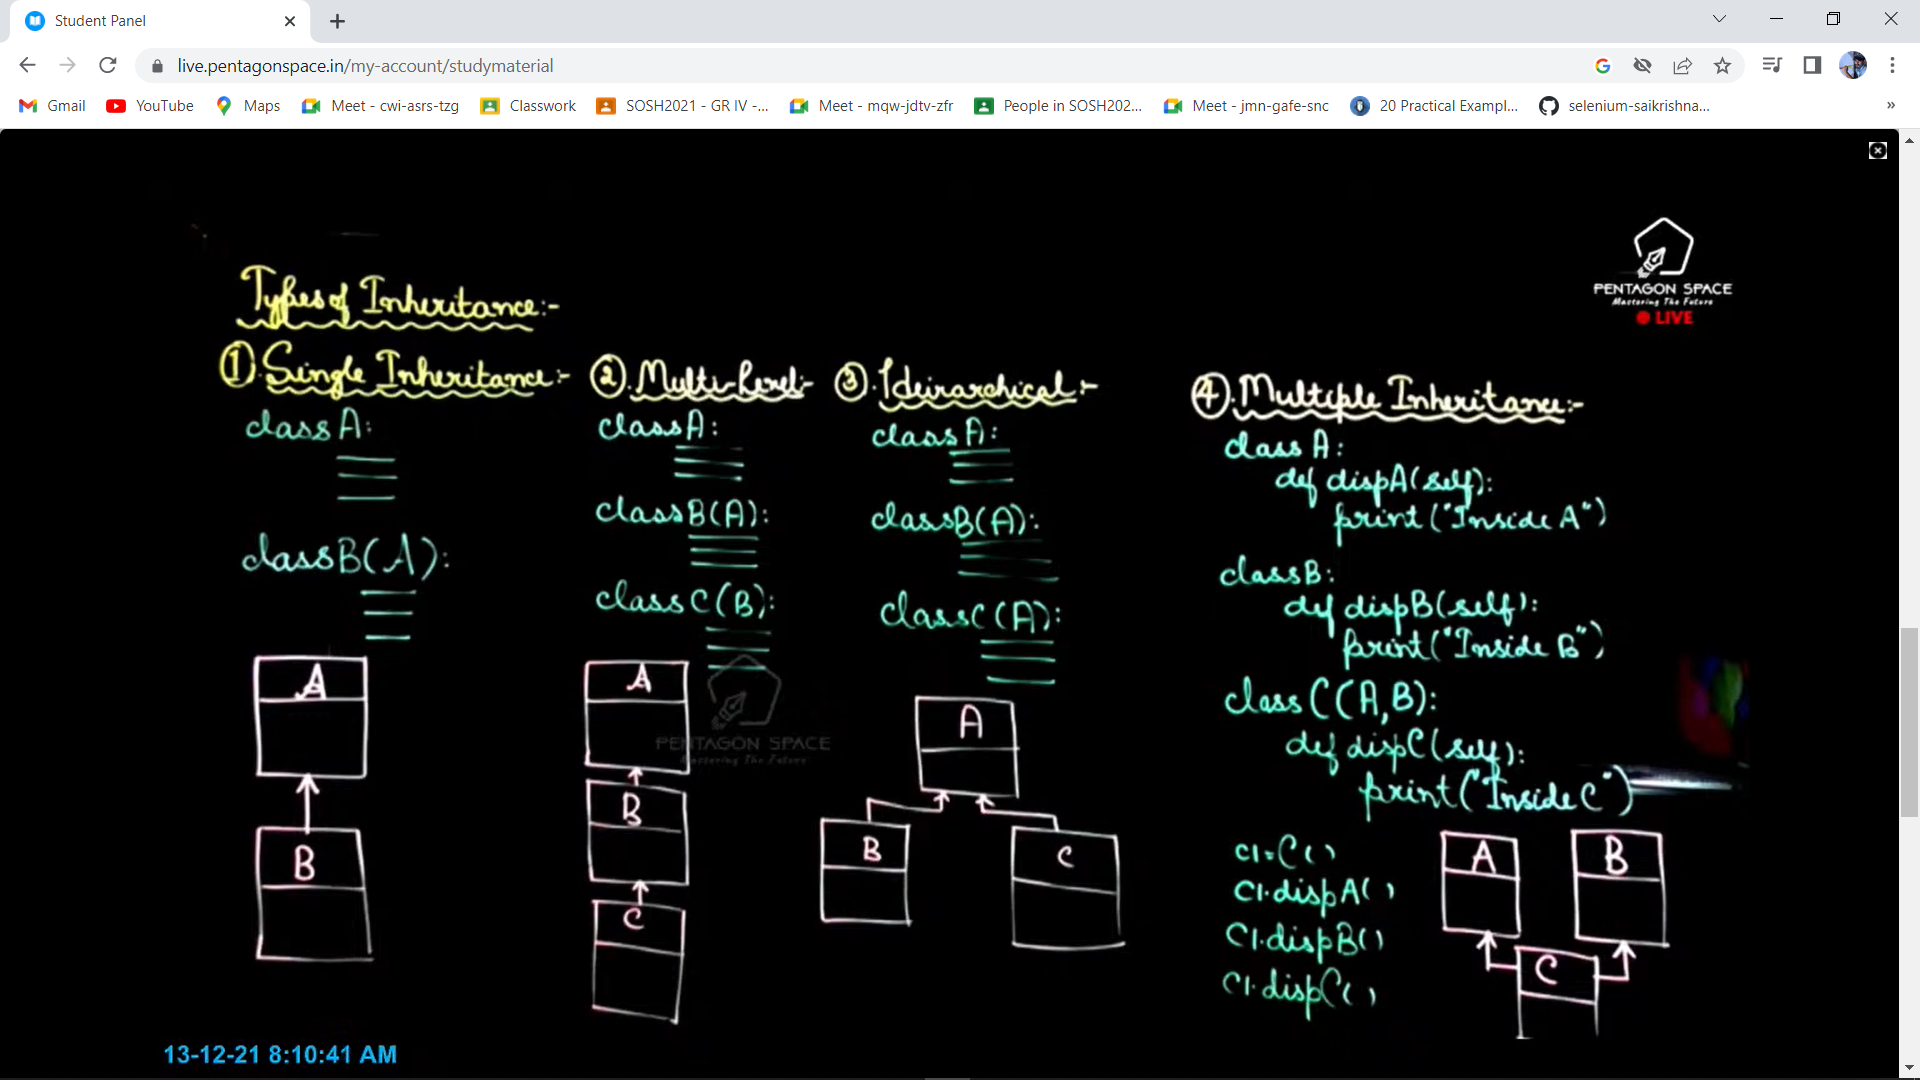 Student Panel
live.pentagonspace.in/my-account/studymaterial
Gmail
YouTube
Maps
Meet - cwi-asrs-tzg
Classwork
SOSH2021 - GR IV -...
Meet - mqw-jdtv-zfr
People in SOSH202...
Meet - jmn-gafe-snc
20 Practical Exampl...
selenium-saikrishna...
»
PENTAGON SPACE
Mastering The Future
LIVE
Types of Inheritance:-
①. Single Inheritance:-
class A:
class B(A):
A
B
②. Multi-Level:-
class A:
class B(A):
class C(B):
A
B
C
PENTAGON SPACE
Mastering The Future
③. Heirarchical:-
class A:
class B(A):
class C(A):
A
B
C
④. Multiple Inheritance:-
class A:
def dispA(self):
print("Inside A")
class B:
def dispB(self):
print("Inside B")
class C(A,B):
def dispC(self):
print("Inside C")
C1=C()
C1.dispA()
C1.dispB()
C1.dispC()
A
B
C
13-12-21 8:10:41 AM